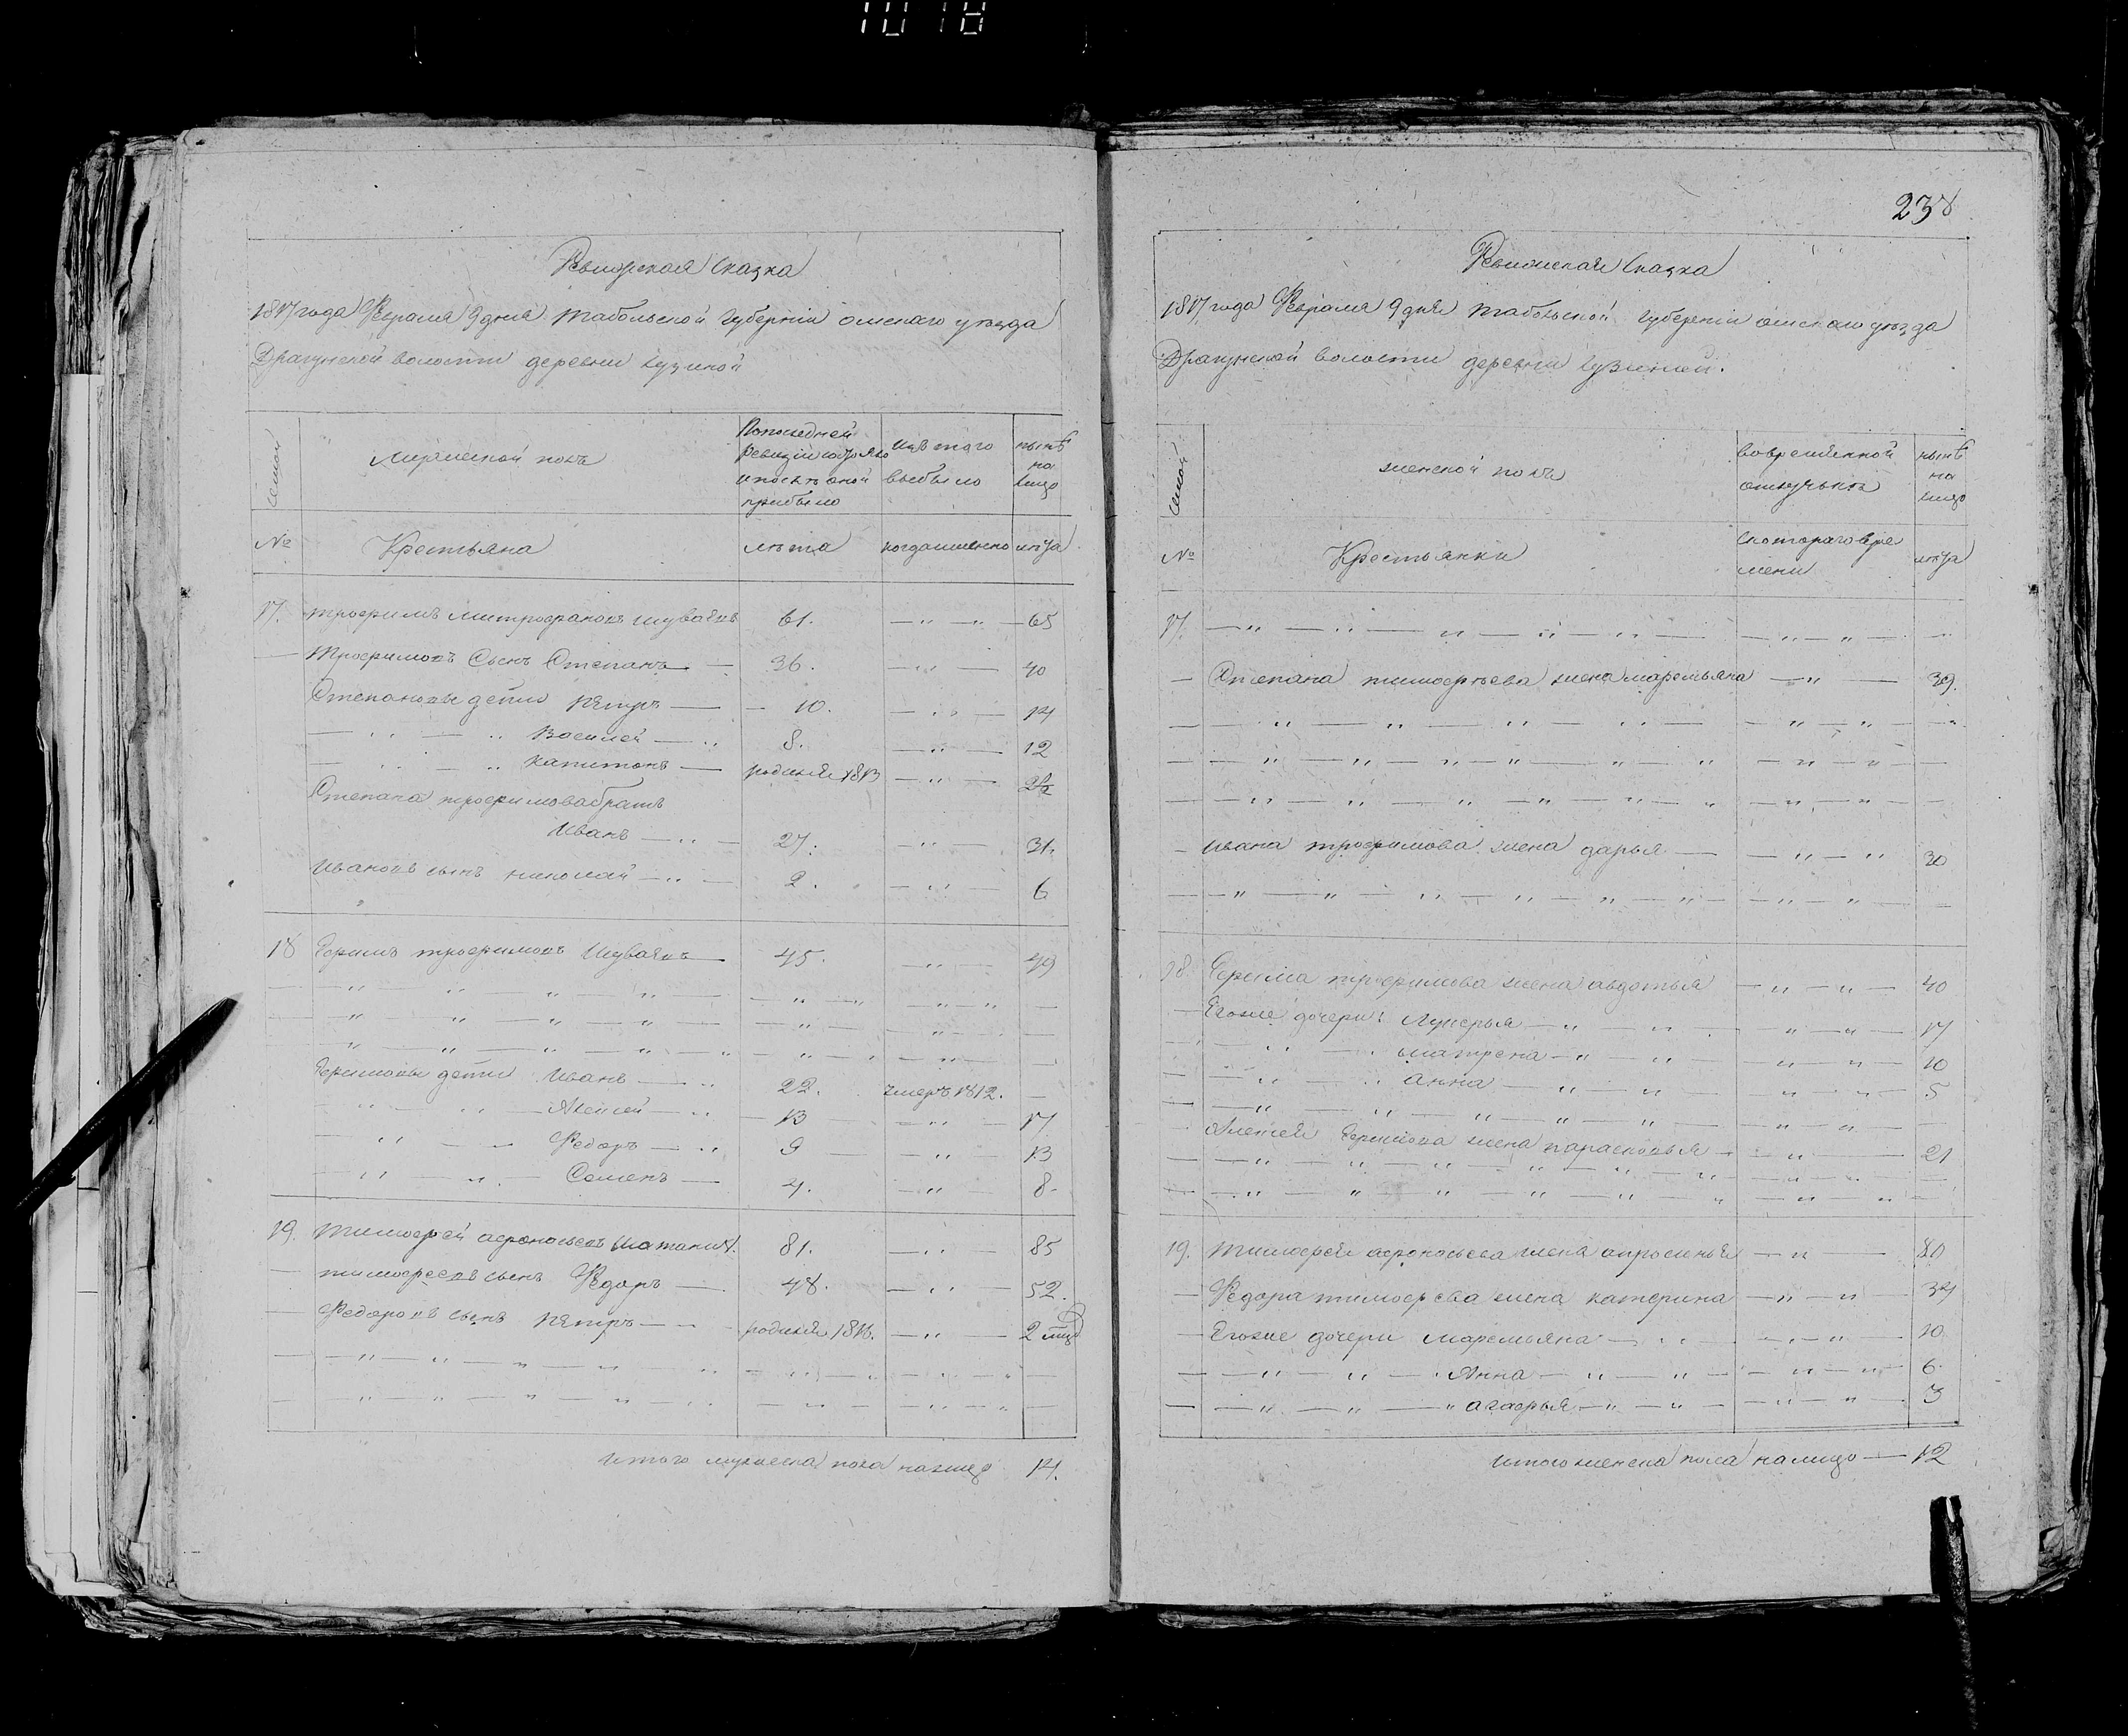 1018
Ревизская Сказка
1817 года Февраля 9 дня Табольской губернии омскаго уезда
Драгунской волости деревни кузиной
семьи
Мужеской полъ
По последней ревизии состояло и после оной прибыло
изъ того выбыло
ныне на лицо
№ Крестьяна лета когда именно лета
17. трофимъ митрофановъ шуваевъ 61. — 65
— Трофимовъ Сынъ Степанъ — 36. — 40
Степановы дети петръ — 10. — 14
Василей — 8. — 12
капитонъ — родился 1813 —
Степана трофимова братъ
Иванъ — 27. — 31.
Ивановъ сынъ николай — 2. — 6
18 Ефимъ трофимовъ Шуваевъ — 45. — 49
Ефимовы дети Иванъ — 22. умеръ 1812. —
Алексей — 13 — 17
Федоръ — 9 — 13
Семенъ — 4. — 8.
19. тимофей афонасьевъ 81. — 85
— тимофеевъ сынъ Федоръ — 48. — 52.
— Федоровъ сынъ петръ — родился 1816. — 2
итого мужеска пола налицо 14.
238
Ревизская Сказка
1817 года Февраля 9 дня табольской губернии омскаго уезда
Драгунской волости деревни кузиной.
семьи
женской полъ
во временной отлучьке
ныне на лицо
№ Крестьянки с котораго времени лета
17.
— Степана тимофеева жена маремьяна — 39.
— Ивана трофимова жена дарья — 30
18. Ефима трофимова жена авдотья — 40
— Егоже дочери: Лукерья — 17
матрена — 10
Анна — 5
Алексея Ефимова жена парасковья — 21
19. тимофея афонасьева жена апросинья — 80
— Федора тимофеева жена катерина — 34
— Егоже дочери маремьяна — 10
Анна — 6
агафья — 3
итого женска пола налицо — 12